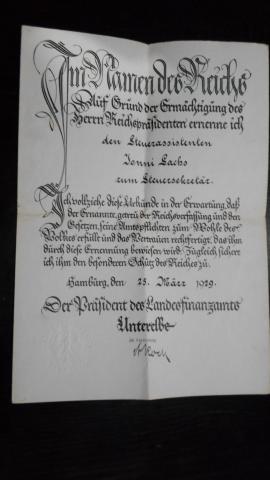 Im Namen des Reichs
Auf Grund der Ermächtigung des
Herrn Reichspräsidenten ernenne ich
den Steuerassistenten
Jonni Sachs
zum Steuersekretär.
Ich vollziehe diese Urkunde in der Erwartung, daß
der Ernannte, getreu der Reichsverfassung und den
Gesetzen, seine Amtspflichten zum Wohle des
Volkes erfüllt und das Vertrauen rechtfertigt, das ihm
durch diese Ernennung bewiesen wird. Zugleich sichere
ich ihm den besonderen Schutz des Reiches zu.
Hamburg, den 25. März 1929.
Der Präsident des Landesfinanzamts
Unterelbe